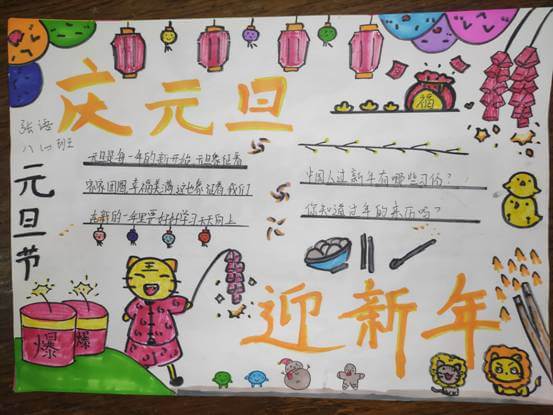 庆元旦
福
张
八四班
元旦节
元旦是每一年的新开始,元旦象征着
家家团圆幸福美满,这也象征着我们
在新的一年里要好好学习天天向上
中国人过新年有哪些习俗?
你知道过年的来历吗?
爆
爆
迎新年